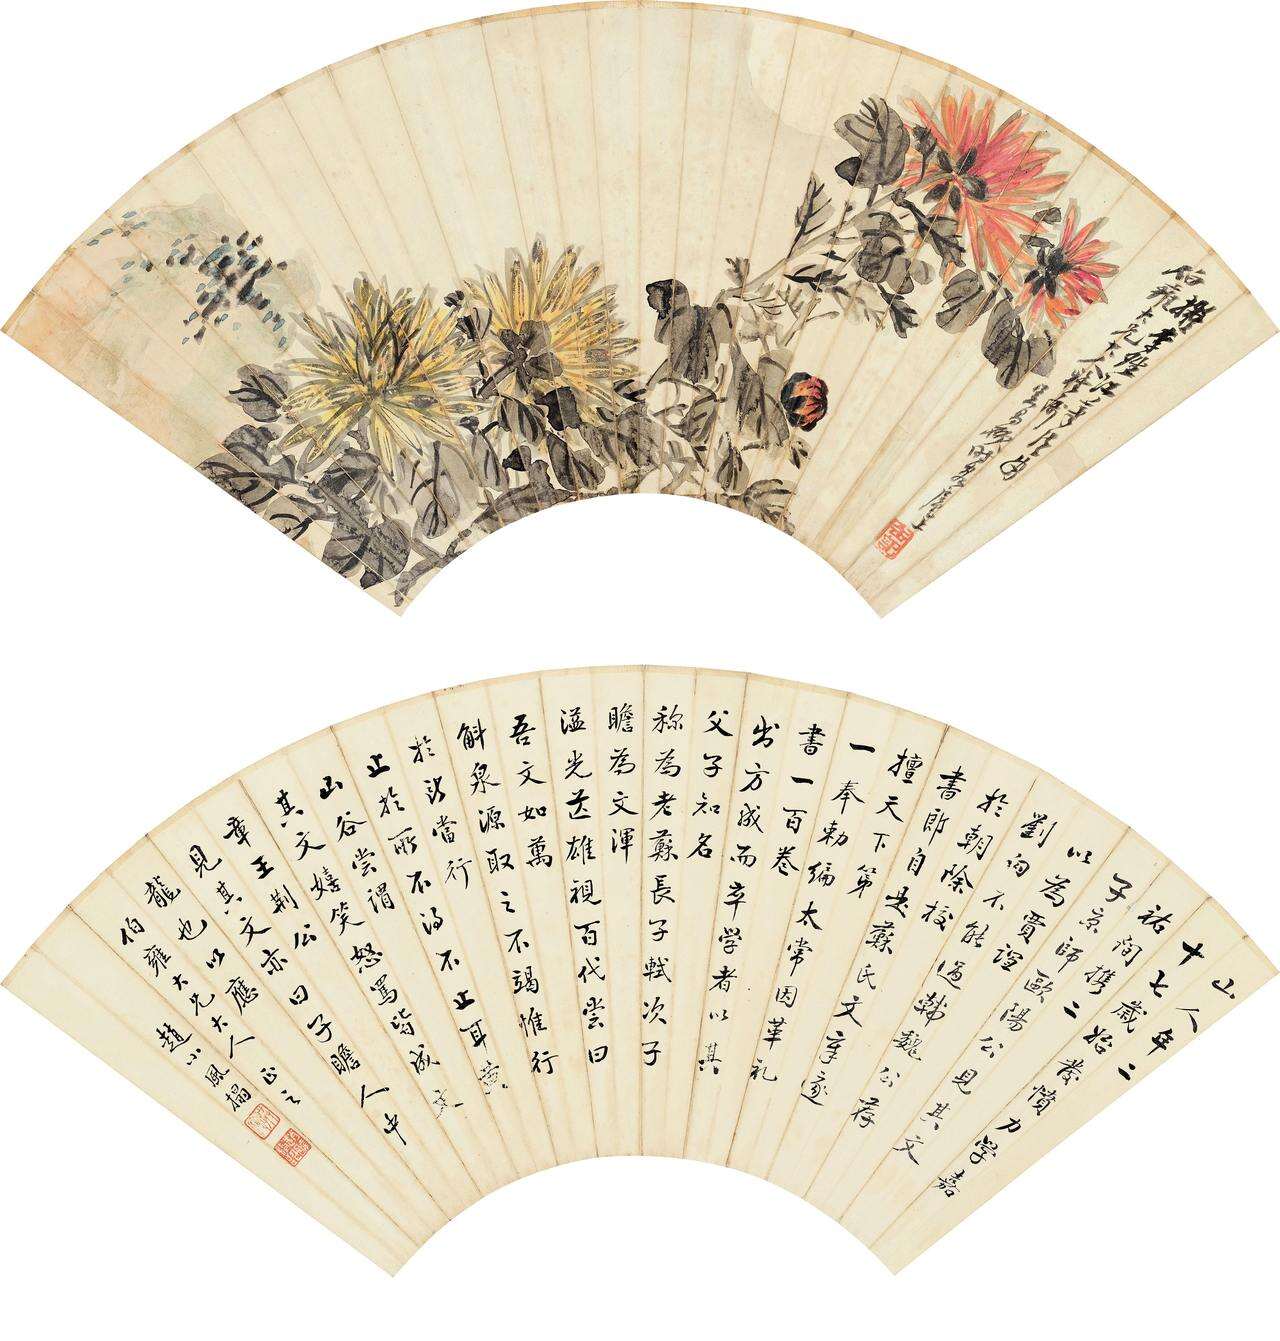 吳昌碩時客滬上
山人年二
十七歲始發憤力學嘉
祐間携二
子京師歐陽公見其文
以為賈誼
劉向不能過韓魏公荐
於朝除校
書郎自是蘇氏文章遂
擅天下第
一奉勅編太常因革礼
書一百卷
出方成而卒學者以其
父子知名
称為老蘇長子軾次子
瞻為文渾
溢光芒雄視百代嘗曰
吾文如萬
斛泉源取之不竭惟行
於所當行
止於所不得不止耳黃
山谷嘗謂
其文嬉笑怒罵皆成文
章王荊公
見其文亦曰子瞻人中
龍也以應
伯雍大兄大人正之
趙小風